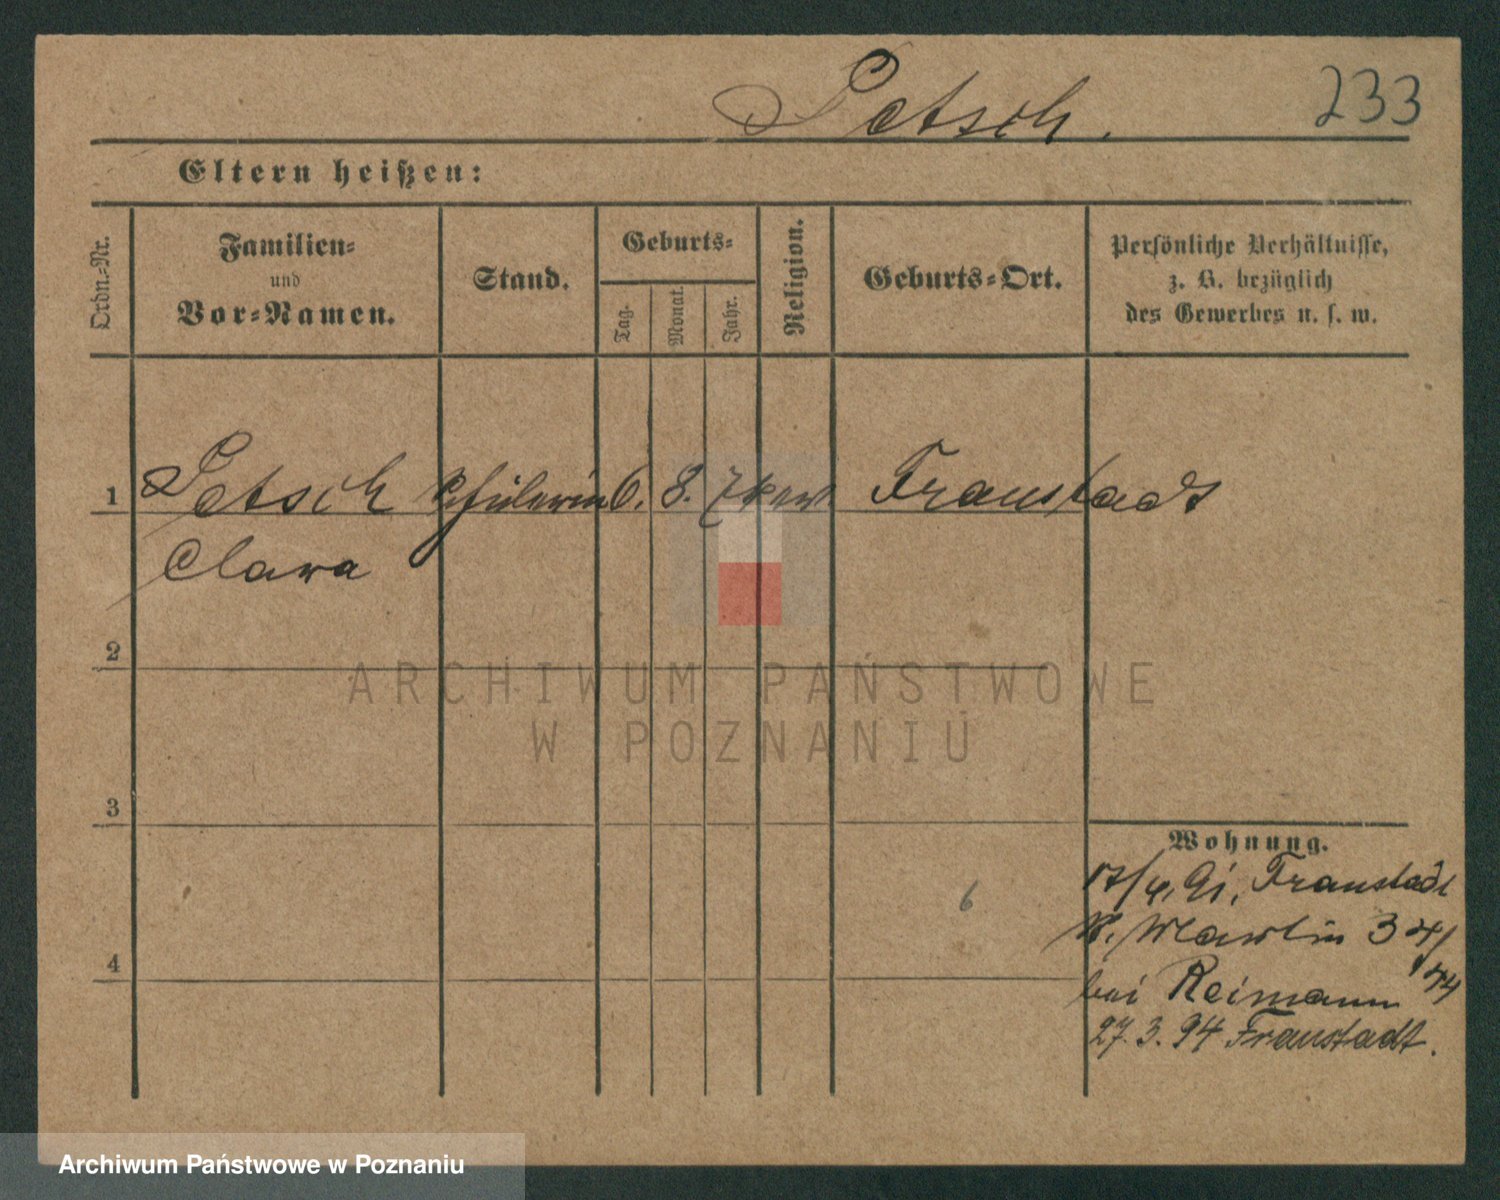 Petsch.
233
Eltern heißen:
Ordn.-Nr.
Familien-
und
Vor-Namen.
Stand.
Geburts-
Tag.
Monat.
Jahr.
Religion.
Geburts-Ort.
Persönliche Verhältnisse,
z. B. bezüglich
des Gewerbes u. s. w.
1 Petsch Schülerin 6. 8. 78 ev. Fraustadt
Clara
2
3
4
6
Wohnung.
17/4. 91. Fraustadt
St. Martin 34/
44
bei Reimann
27. 3. 94 Fraustadt.
ARCHIWUM PAŃSTWOWE
W POZNANIU
Archiwum Państwowe w Poznaniu